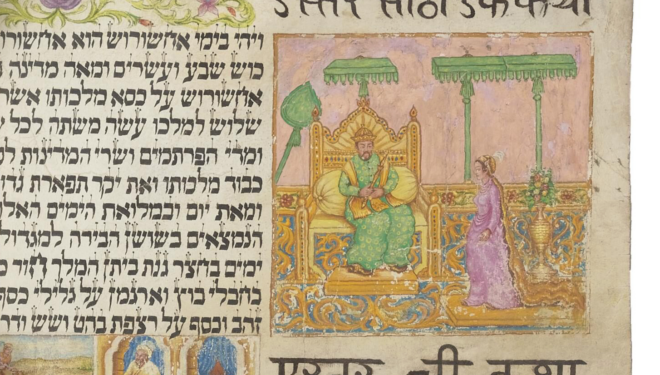 ויהי בימי אחשורוש הוא
כוש שבע ועשרים ומאה מדינה
אחשורוש על כסא מלכותו אשר
שלוש למלכו עשה משתה לכל
ומדי הפרתמים ושרי המדינות
כבוד מלכותו ואת יקר תפארת
ומאת יום ובמלואת הימים
הנמצאים בשושן הבירה למגדול
ימים בחצר גנת ביתן המלך חור
בחבלי בוץ וארגמן על גלילי כסף
זהב וכסף על רצפת בהט ושש ודר